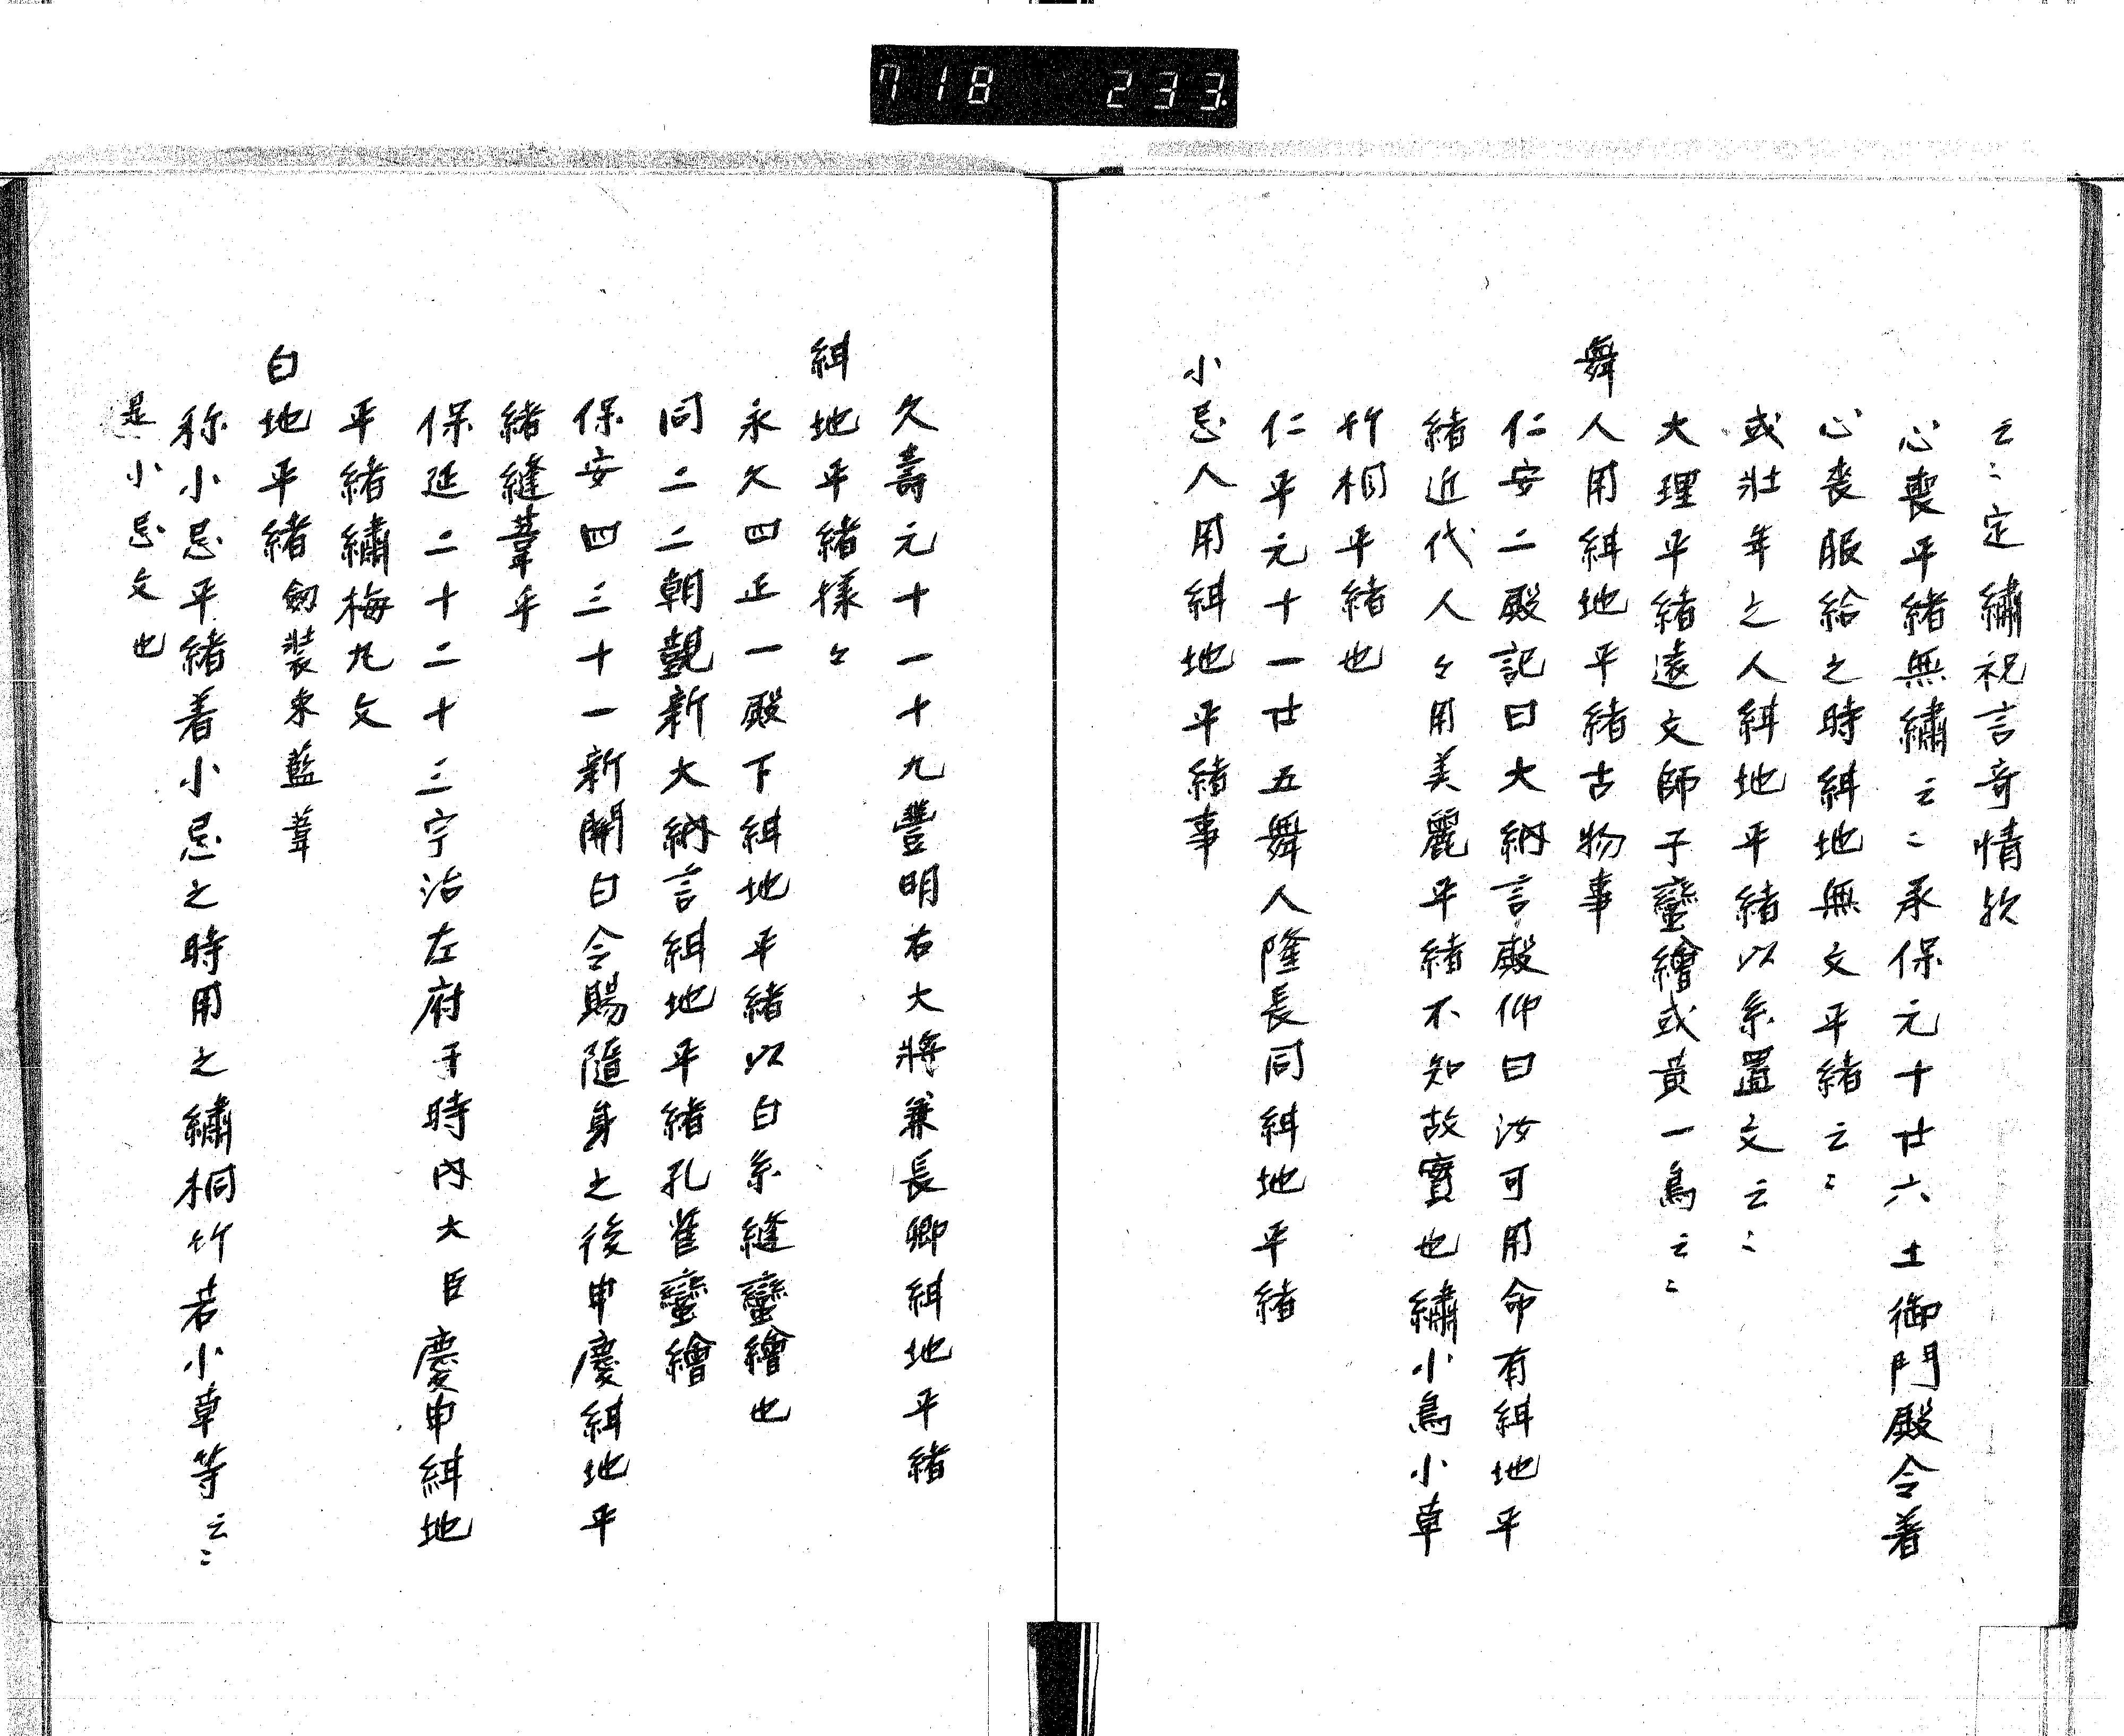 718 233.
云〻定繡祝言奇情欤
心喪平緒無繡云〻承保元十廿六土御門殿令着
心喪服給之時絓地無文平緒云〻
或壮年之人絓地平緒以糸置文云〻
大理平緒遠文師子蠻繪或黄一鳥云〻
舞人用絓地平緒古物事
仁安二殿記曰大納言殿仰曰汝可用命有絓地平
緒近代人々用美麗平緒不知故實也繡小鳥小草
竹桐平緒也
仁平元十一廿五舞人隆長同絓地平緒
小忌人用絓地平緒事
久壽元十一十九豐明右大將兼長卿絓地平緒
絓地平緒様々
永久四正一殿下絓地平緒以白糸縫蠻繪也
同二二朝覲新大納言絓地平緒孔雀蠻繪
保安四三十一新關白令賜隨身之後申慶絓地平
緒縫葦手
保延二十二十三宇治左府于時内大臣慶申絓地
平緒繡梅丸文
白地平緒 劔装束藍革
称小忌平緒着小忌之時用之繡桐竹若小草等云〻
是小忌文也